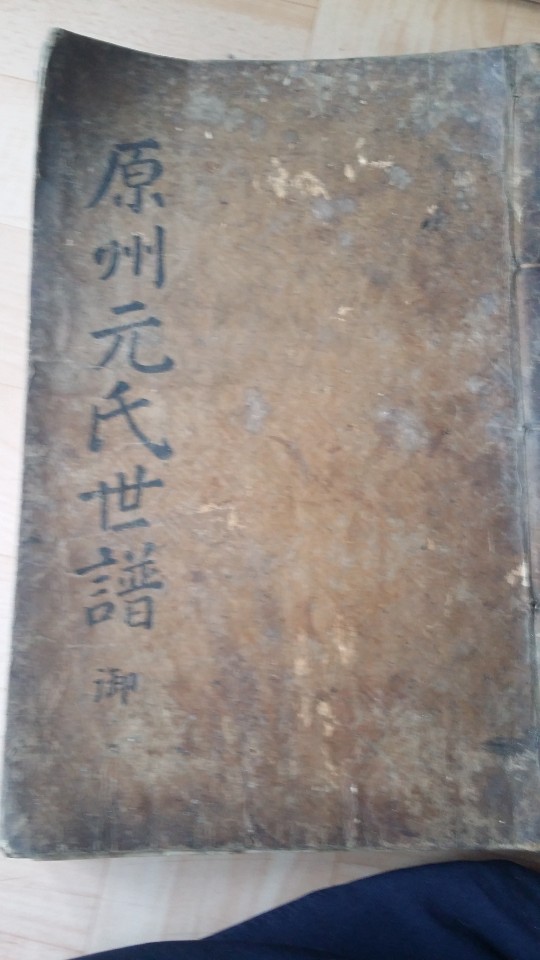 原州元氏世譜 御